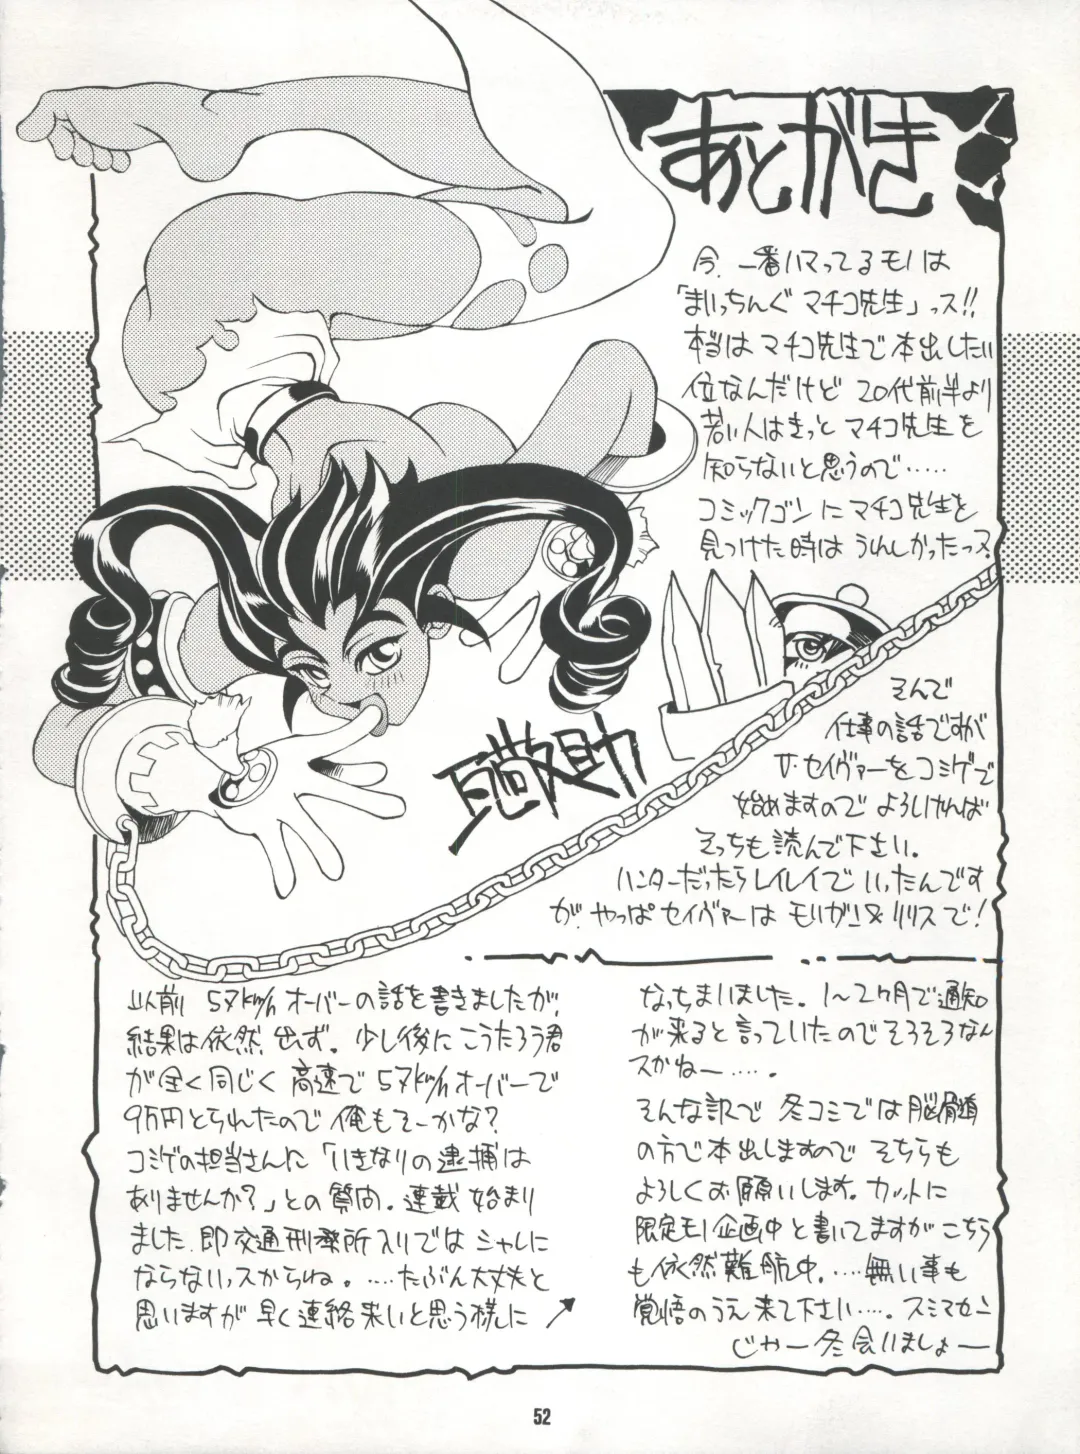 あとがき
今、一番ハマってるモノは
「まいっちんぐマチコ先生」っス!!
本当はマチコ先生で本出したい
位なんだけど 20代前半より
若い人はきっとマチコ先生を
知らないと思うので……
コミックゴンにマチコ先生を
見つけた時はうれしかったっス
そんで
仕事の話ですが
V・セイヴァーをコミゲで
始めますのでよろしければ
そっちも読んで下さい。
ハンターだったらレイレイでいったんです
が、やっぱセイヴァーはモリガン&リリスで!
敬助
以前 57km/hオーバーの話を書きましたが、
結果は依然、出ず。少し後にこうたろう君
が全く同じく高速で57km/hオーバーで
9万円とられたので俺もそーかな?
コミゲの担当さんに「いきなりの逮捕は
ありませんか?」との質問。連載始まり
ました、即交通刑務所入りではシャレに
ならないっスからね。……たぶん大丈夫と
思いますが早く連絡来いと思う様に
なっちまいました。1〜2ヶ月で通知
が来ると言っていたのでそろそろなん
スかねー……。
そんな訳で 冬コミでは脳髄
の方で本出しますので そちらも
よろしくお願いします。カットに
限定モノ企画中と書いてますがこちら
も依然難航中。……無い事も
覚悟のうえ来て下さい……。スミマセン
じゃー冬会いましょー
52